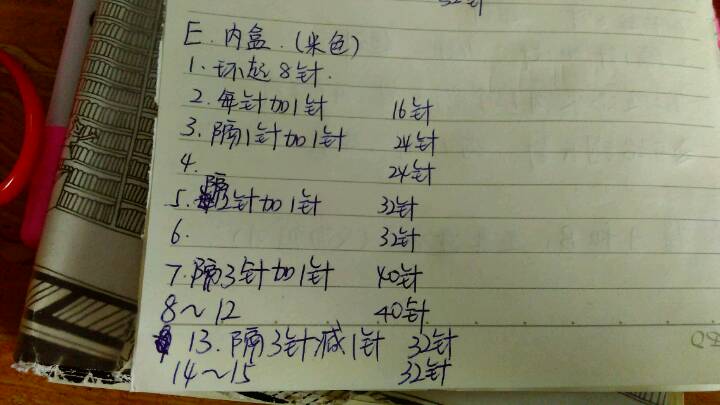 32针
E.内盒.(米色)
1.环起8针.
2.每针加1针 16针
3.隔1针加1针 24针
4. 24针
5.隔2针加1针 32针
6. 32针
7.隔3针加1针 40针
8~12 40针
13.隔3针减1针 32针
14~15 32针